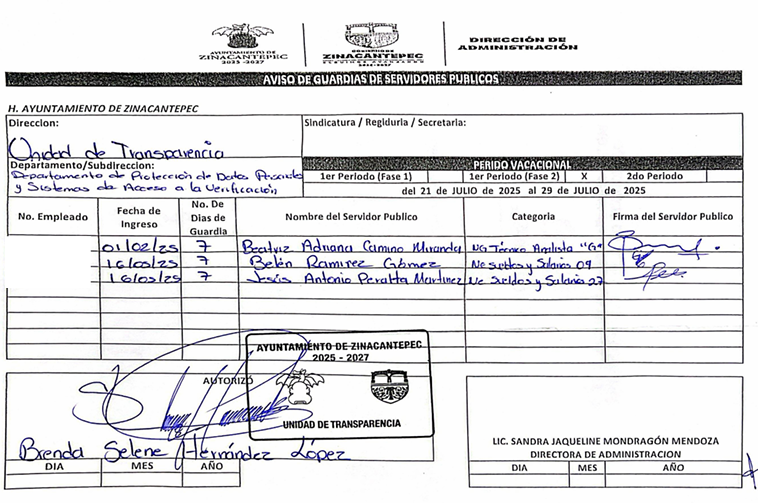 AYUNTAMIENTO DE
ZINACANTEPEC
2025 - 2027
ZINACANTEPEC
DIRECCIÓN DE
ADMINISTRACIÓN
AVISO DE GUARDIAS DE SERVIDORES PUBLICOS
H. AYUNTAMIENTO DE ZINACANTEPEC
Direccion:
Sindicatura / Regiduria / Secretaria:
Unidad de Transparencia
Departamento/Subdireccion:
PERIDO VACACIONAL
Departamento de Protección de Datos
y Sistemas de Acceso a la Verificación
1er Periodo (Fase 1)
1er Periodo (Fase 2)
X
2do Periodo
del 21 de JULIO de 2025 al 29 de JULIO de 2025
No. Empleado
Fecha de Ingreso
No. De Dias de Guardia
Nombre del Servidor Publico
Categoria
Firma del Servidor Publico
01/02/25 7 Beatriz Adriana Camino Miranda NG Técnico Analista "G"
16/03/25 7 Belén Ramirez Gómez Ne Sueldos y Salarios 09
16/03/25 7 Jesús Antonio Peralta Martinez Ne Sueldos y Salarios 27
AYUNTAMIENTO DE ZINACANTEPEC
2025 - 2027
UNIDAD DE TRANSPARENCIA
AUTORIZÓ
Brenda Selene Hernández López
DIA MES AÑO
LIC. SANDRA JAQUELINE MONDRAGÓN MENDOZA
DIRECTORA DE ADMINISTRACION
DIA MES AÑO